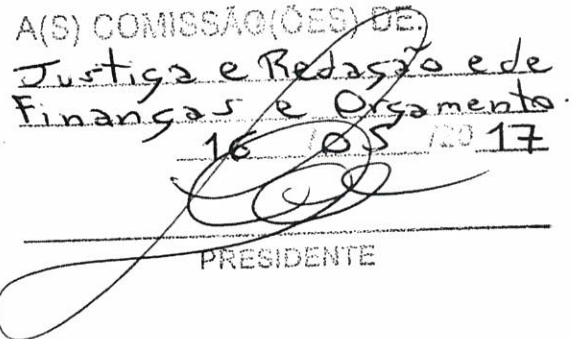 A(S) COMISSÃO(ÕES) DE:
Justiça e Redação e de
Finanças e Orçamento.
16 / 05 /20 17
PRESIDENTE